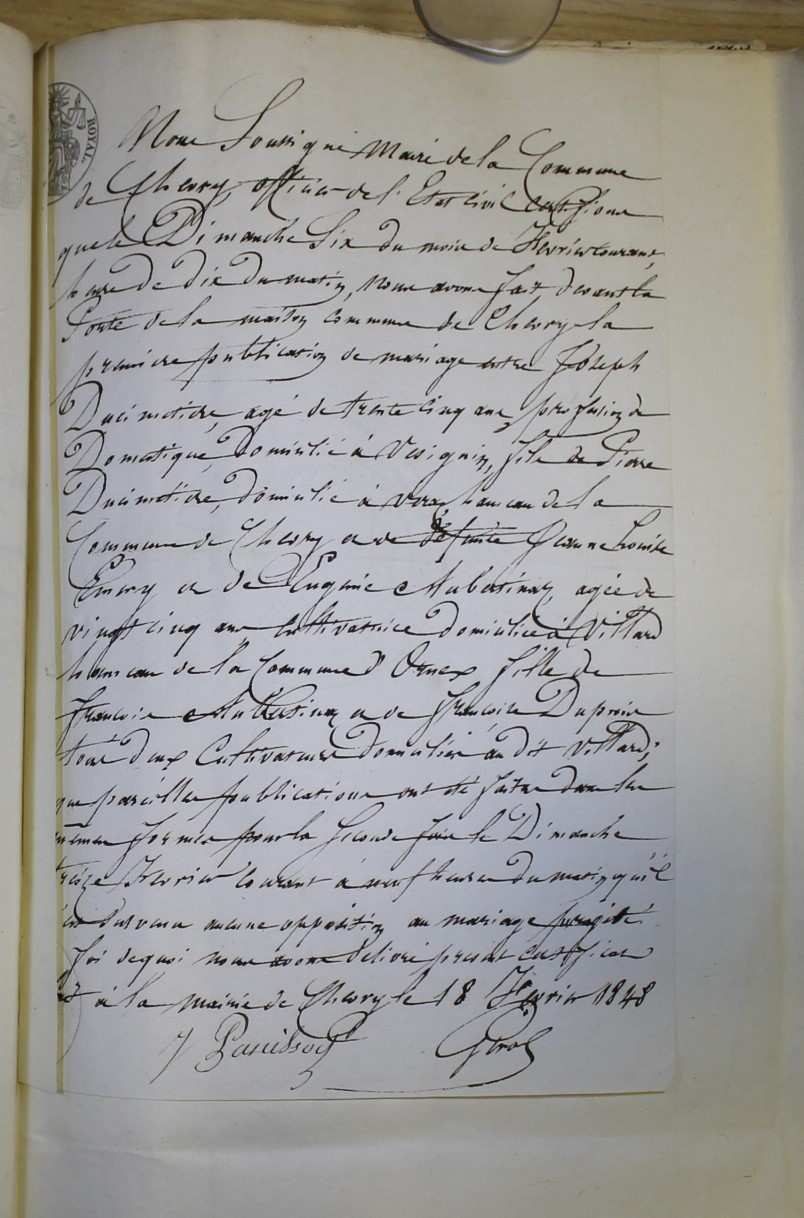 ROYAL.
Nous Soussigné Maire de la Commune
de Chevry, officier de l'Etat civil certifions
que le Dimanche Six du mois de Fevrier courant,
heure de dix du matin, nous avons fait, devant la
Porte de la maison commune de Chevry la
premiere publication de mariage entre Joseph
Ducimetière, agé de trente cinq ans, profession de
Domestique, Domicilié à Vesignin, fils de Pierre
Ducimetière, domicilié à Veraz, hameau de la
Commune de Chevry et de défunte Jeanne Louise
Emery et de Eugénie agée de
vingt cinq ans Cultivatrice domiciliée à Villard
hameau de la Commune d'Ornex fille de
François et de Françoise Duprois
tous deux Cultivateurs domiciliés au dit Villard;
que pareilles publications ont été faites dans les
mêmes formes pour la seconde fois le Dimanche
treize Fevrier courant à neuf heures du matin, qu'il
est survenu aucune opposition au mariage projeté.
foi de quoi nous avons délivré présent certificat
à la Mairie de Chevry le 18 Fevrier 1848
J Panissod Girod